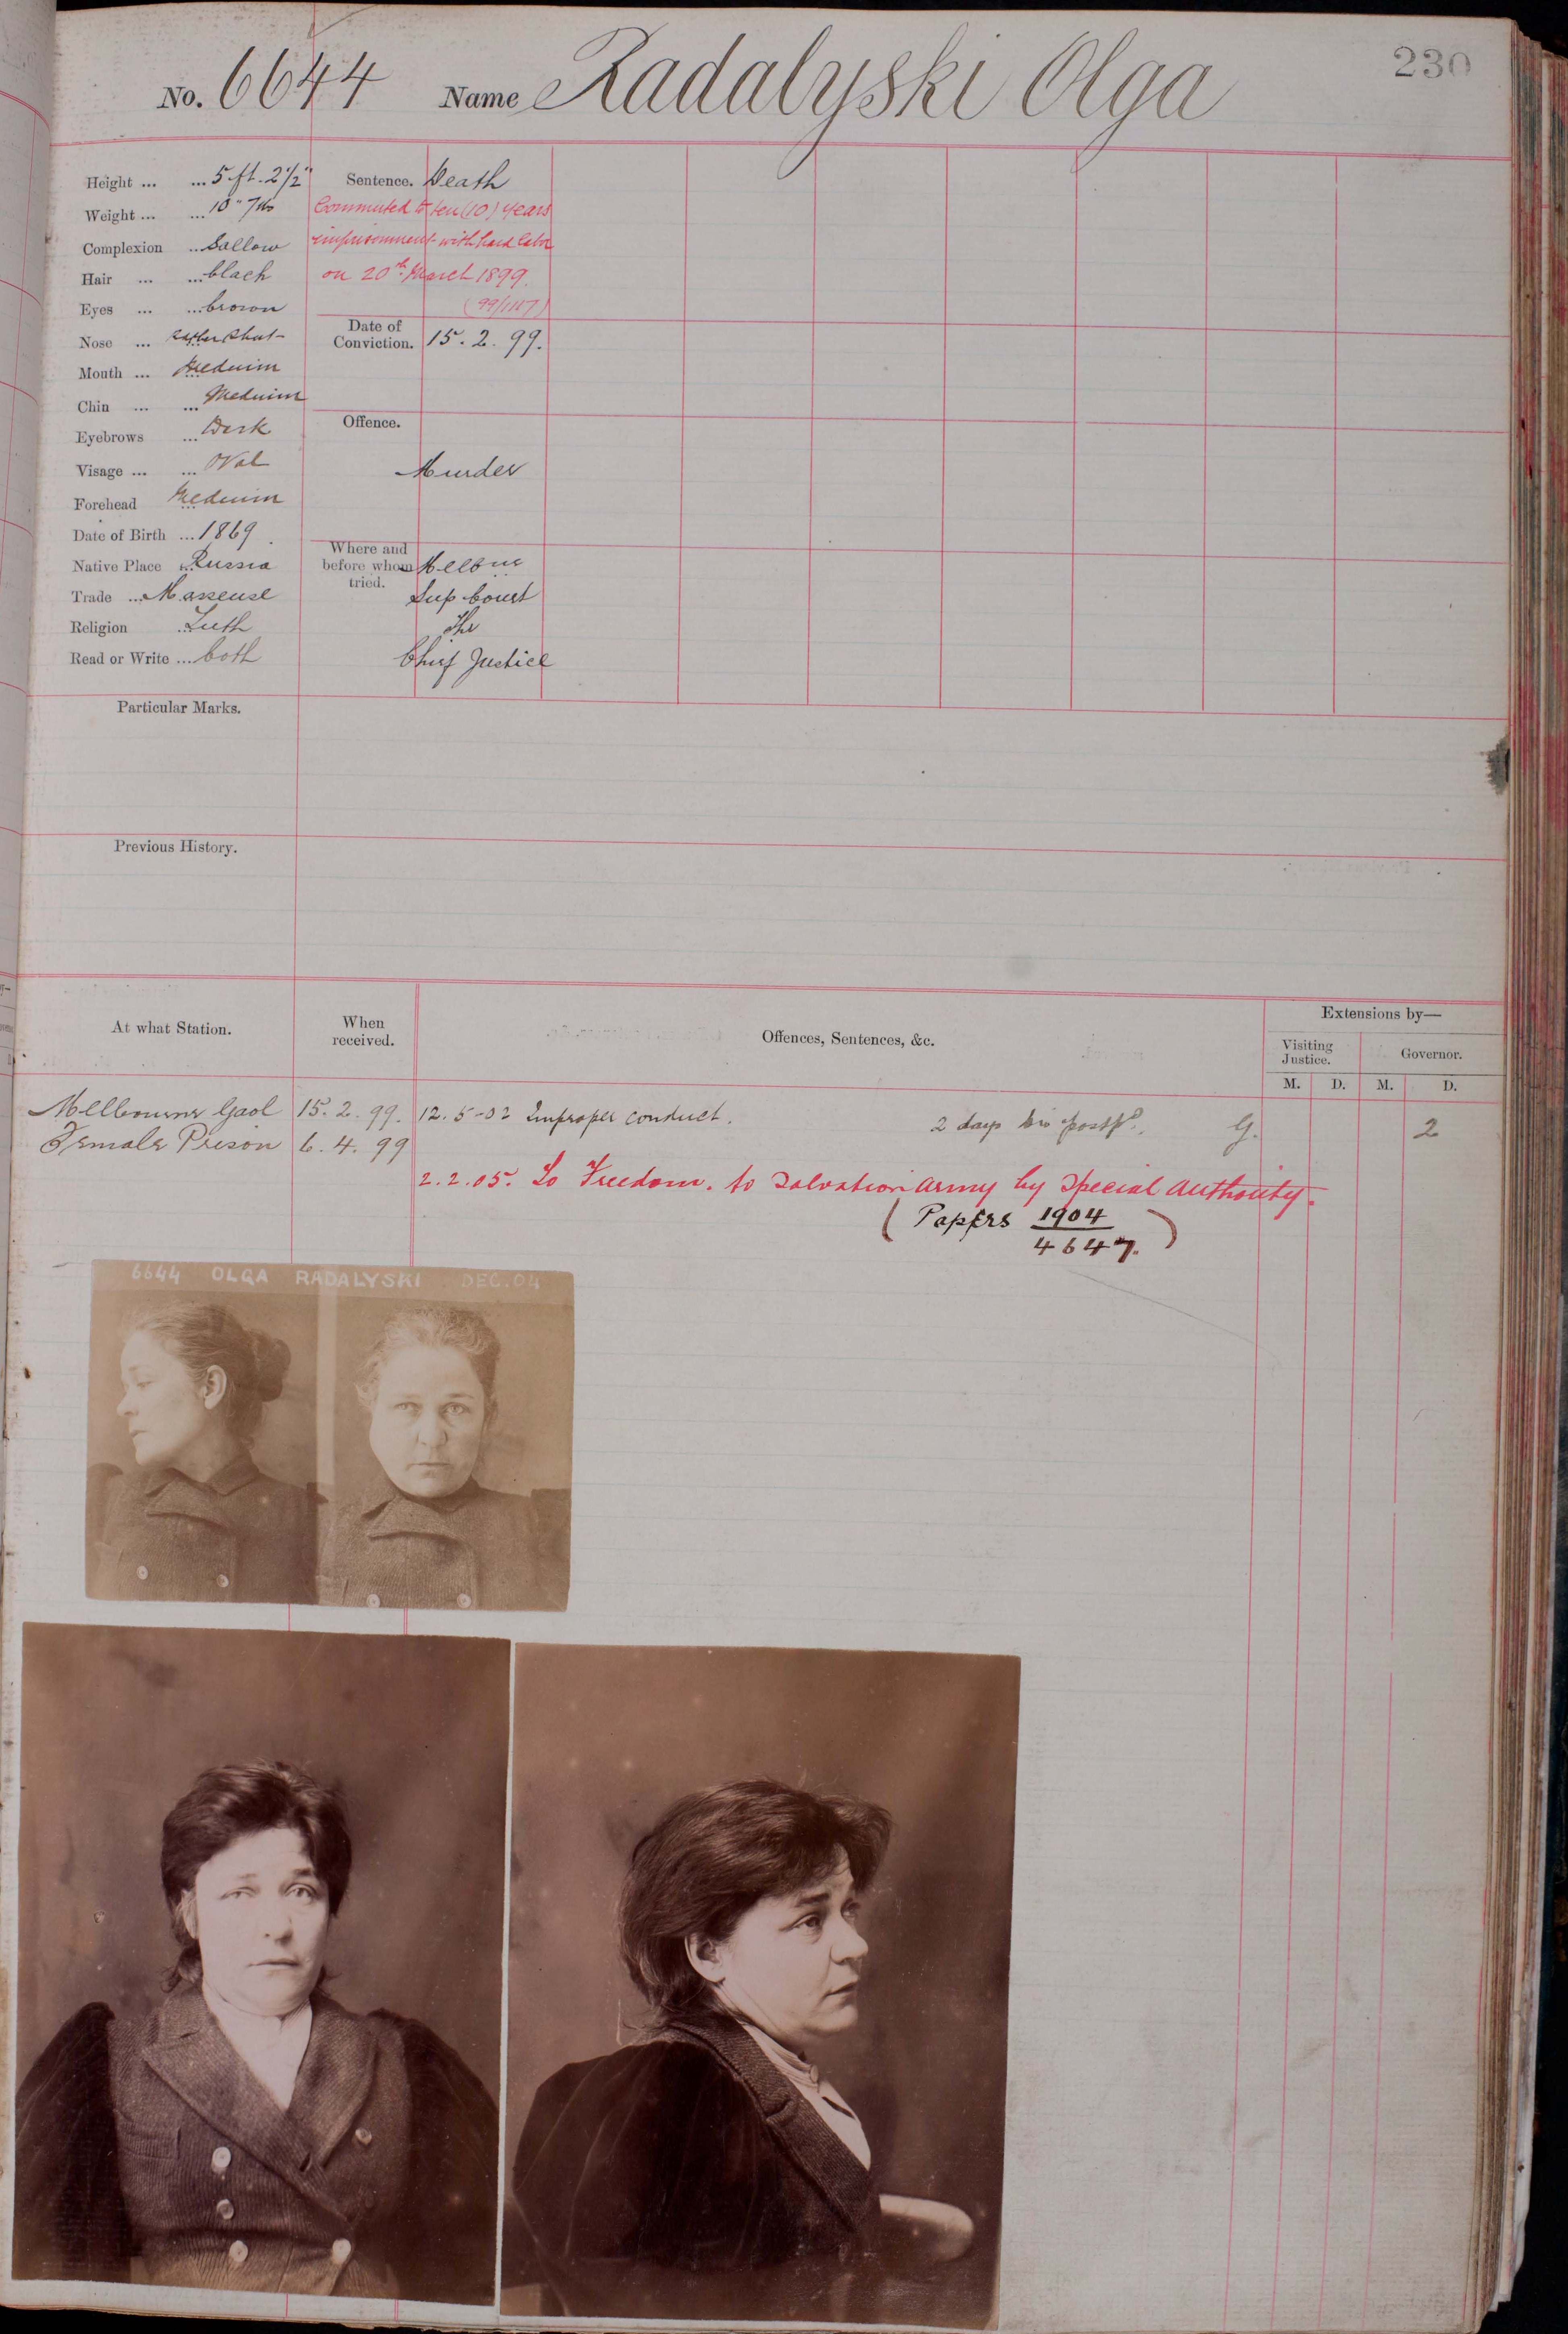 230
No. 6644 Name Radalyski Olga
Height ... ... 5 ft. 2 1/2"
Weight ... ... 10" 7 lbs
Complexion ... Sallow
Hair ... ... black
Eyes ... ... brown
Nose ...
Mouth ... Meduim
Chin ... ... Meduim
Eyebrows ... Dark
Visage ... ... Oval
Forehead ... Meduim
Date of Birth ... 1869.
Native Place ... Russia
Trade ... Masseuse
Religion ... Luth
Read or Write ... both
Sentence. Death
Commuted to ten (10) years
imprisonment with hard labor
on 20th March 1899.
(99/1187)
Date of
Conviction. 15. 2. 99.
Offence.
Murder
Where and
before whom
tried.
Melbne
Sup Court
The
Chief Justice
Particular Marks.
Previous History.
At what Station. When
received. Offences, Sentences, &c. Extensions by—
Visiting
Justice. Governor.
M. D. M. D.
Melbourne Gaol 15. 2. 99. 12. 5-02 Improper conduct. 2 days G. 2
Female Prison 6. 4. 99
2. 2. 05. To Freedom. to Salvation Army by Special Authority.
(Papers 1904
4647.)
6644 OLGA RADALYSKI DEC. 04